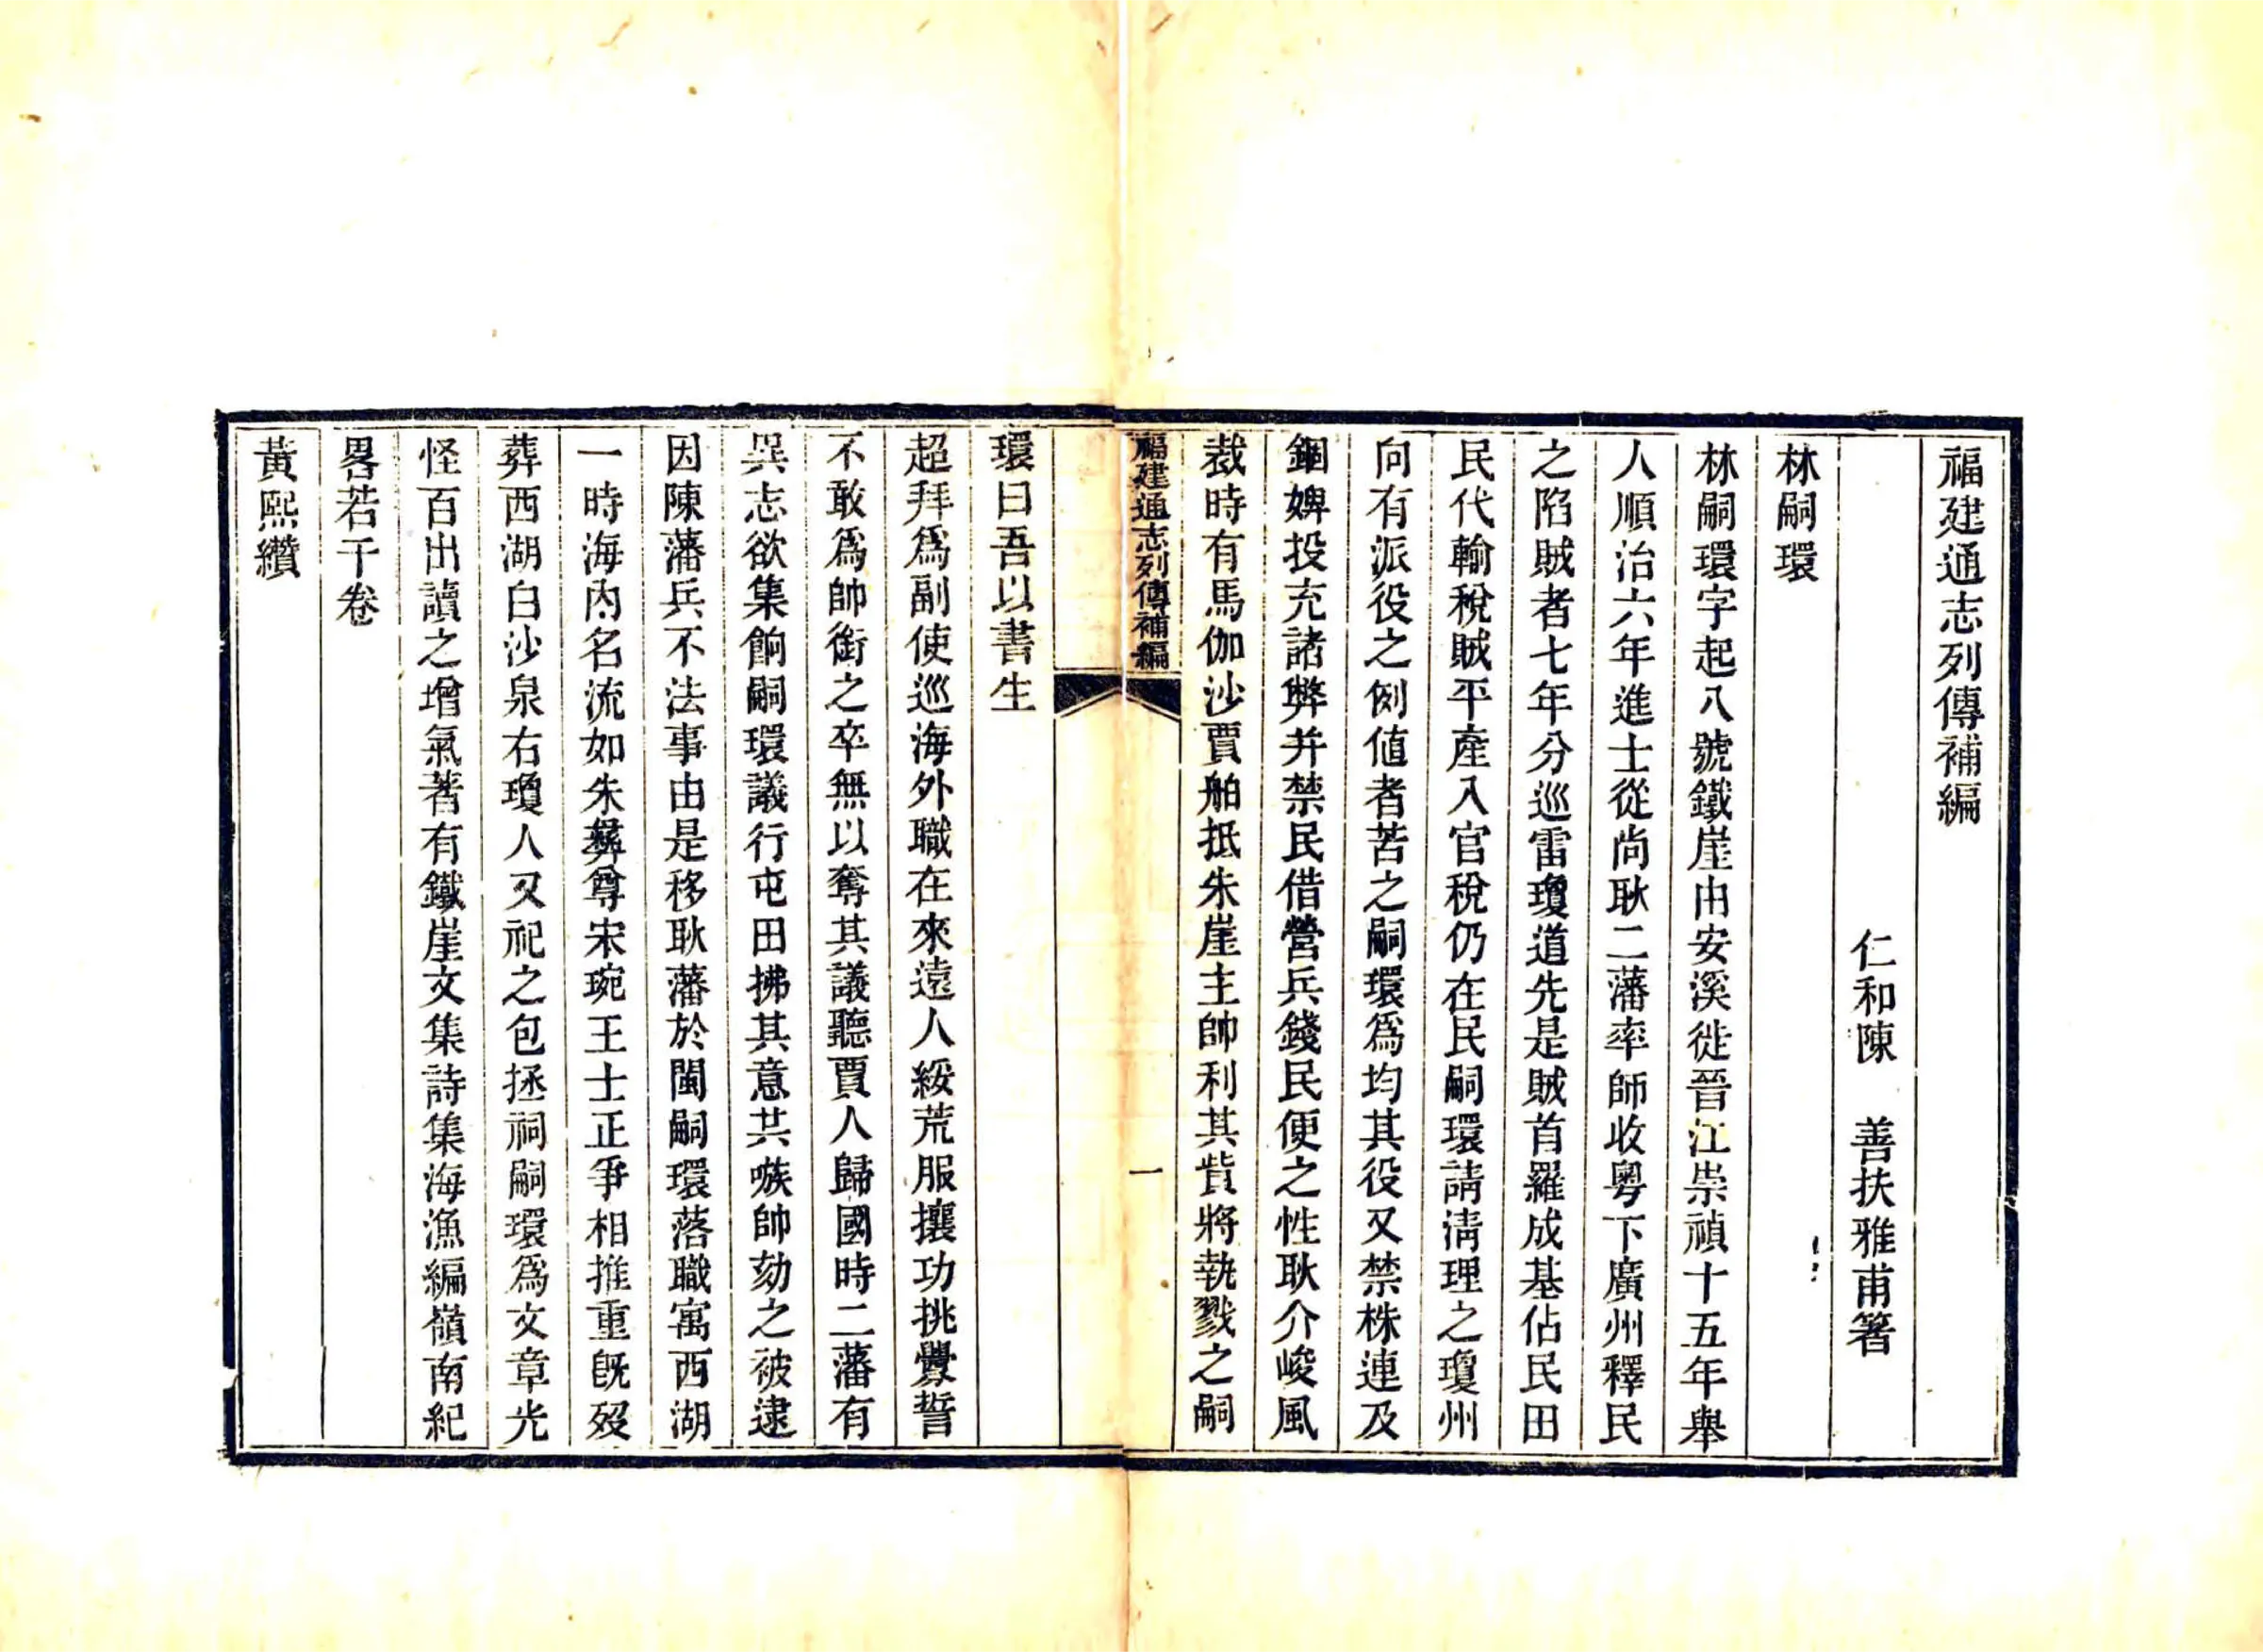 福建通志列傳補編
仁和陳 善扶雅甫箸
林嗣環
林嗣環字起八號鐵崖由安溪徙晉江崇禎十五年舉
人順治六年進士從尚耿二藩率師收粵下廣州釋民
之陷賊者七年分巡雷瓊道先是賊首羅成基佔民田
民代輸稅賊平產入官稅仍在民嗣環請淸理之瓊州
向有派役之例値者苦之嗣環爲均其役又禁株連及
錮婢投充諸弊并禁民借營兵錢民便之性耿介峻風
裁時有馬伽沙賈舶抵朱崖主帥利其貲將執戮之嗣
福建通志列傳補編
一
環曰吾以書生
超拜爲副使巡海外職在來遠人綏荒服攘功挑釁誓
不敢爲帥銜之卒無以奪其議聽賈人歸國時二藩有
異志欲集餉嗣環議行屯田拂其意共嗾帥劾之被逮
因陳藩兵不法事由是移耿藩於閩嗣環落職寓西湖
一時海內名流如朱彝尊宋琬王士正爭相推重旣歿
葬西湖白沙泉右瓊人又祀之包拯祠嗣環爲文章光
怪百出讀之增氣著有鐵崖文集詩集海漁編嶺南紀
畧若干卷
黃熙纘